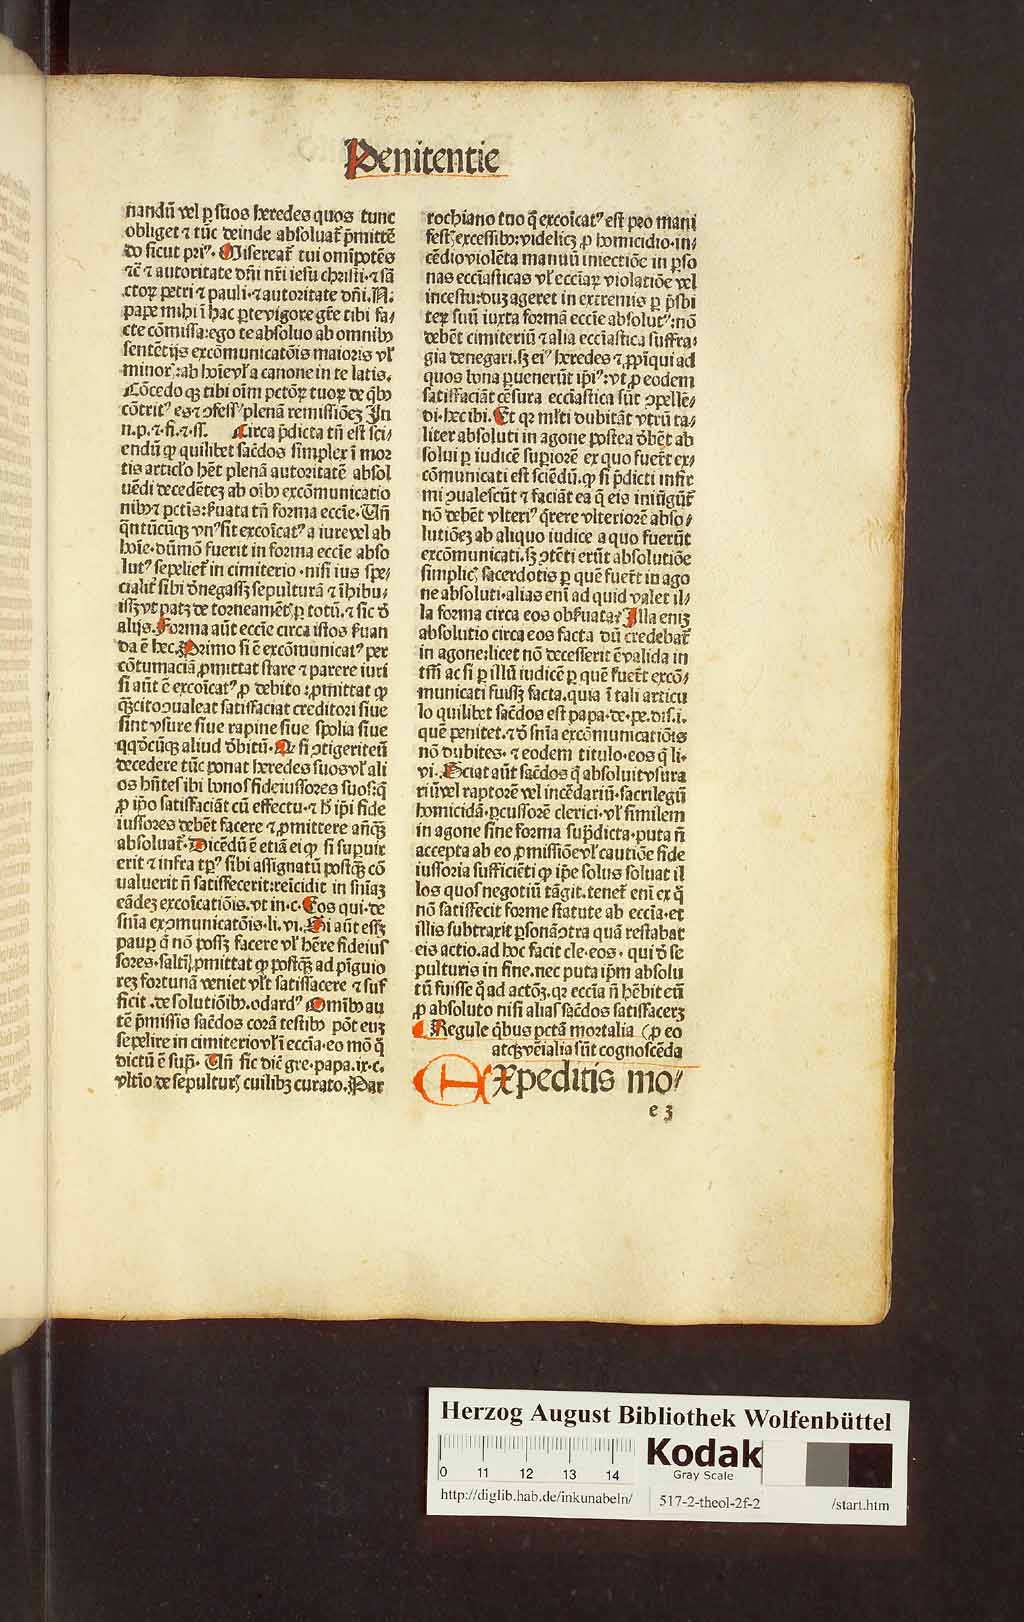 Penitentie
nandū vel ꝑ suos heredes quos tunc
obliget ⁊ tūc deinde absoluat᷑ p̄mittē
do sicut priꝰ. Misereat᷑ tui om̄ipotēs
⁊c̄ ⁊ autoritate dn̄i nr̄i iesu christi ⁊ sā
ctoꝝ petri ⁊ pauli ⁊ autoritate dn̄i .N.
pape mihi ī hac ꝑte vigore gr̄e tibi fa⸗
cte cōmissa: ego te absoluo ab omnibꝰ
sentētijs excōmunicatōis maioris vl̓
minor᷑: ab hoīe vl̓ a canone in te latis.
Cōcedo qꝫ tibi oīm pctōꝝ tuoꝝ de qͥbꝰ
cōtritꝰ es ⁊ ꝯfessꝰ plenā remissiōeꝫ In
n.p.⁊.fi.⁊.ss. Circa p̄dicta tn̄ est sci⸗
endū ꝙ quilibet sac̄dos simplex ī mor
tis articl̓o hēt plenā autoritatē absol
uēdi decedēteꝫ ab oībꝰ excōmunicatio
nibꝰ ⁊ pctīs: ẜuata tn̄ forma eccīe. Un̄
qn̄tūcūqꝫ vnꝰ sit excoīcatꝰ a iure vel ab
hoīe. dūmō fuerit in forma eccīe abso
lutꝰ sepeliet᷑ in cimiterio. nisi ius spe⸗
cialit᷑ sibi d̓negassꝫ sepulturā ⁊ īhibu⸗
issꝫ vt patꝫ de torneamētꝭ ꝑ totū. ⁊ sic d̓
alijs. Forma aūt eccīe circa istos ẜuan
da ē hec. Primo si ē excōmunicatꝰ per
cōtumaciā ꝓmittat stare ⁊ parere iuri
si aūt ē excoīcatꝰ ꝓ debito: ꝓmittat ꝙ
qͣꝫcito ꝯualeat satisfaciat creditori siue
sint vsure siue rapine siue spolia siue
qqͦdcūqꝫ aliud d̓bitū. Qͦ si ꝯtigerit eū
decedere tūc ponat heredes suos vl̓ ali
os hn̄tes ibi bonos fideiussores suos: qͥ
ꝓ ip̄o satisfaciāt cū effectu. ⁊ hͦ ip̄i fide
iussores debēt facere ⁊ ꝓmittere an̄qͣꝫ
absoluat᷑. Dicēdū ē etiā ei ꝙ si supuix
erit ⁊ infra tp̄ꝰ sibi assignatū postqͣꝫ cō
ualuerit n̄ satisfecerit: reīcidit in sn̄iaꝫ
eādeꝫ excoīcatiōis. vt in.c. Eos qui. de
sn̄ia exꝯmunicatōis. li. vi. Si aūt essꝫ
paup qͥ nō possꝫ facere vl̓ hēre fideius
sores. saltī ꝓmittat ꝙ postqͣꝫ ad pīguio
reꝫ fortunā veniet vl̓t satisfacere ⁊ suf
ficit. de solutiōibꝰ. odardꝰ Om̄ibꝰ au
tē p̄missis sac̄dos corā testibꝰ pōt euꝫ
sepelire in cimiterio vl̓ ī eccīa. eo mō qͦ
dictū ē supͣ. Un̄ sic dic̄ gre. papa. ix. c.
vltīo de sepulturꝭ cuilibꝫ curato. Par
rochiano tuo qͥ excoīcatꝰ est pro mani
festꝭ excessibꝰ: videlicꝫ ꝓ homicidio. in⸗
cēdio violēta manuū iniectiōe in ꝑso
nas ecciasticas vl̓ ecciaꝝ violatiōe vel
incestu: duꝫ ageret in extremis ꝑ p̄sbi
teꝝ suū iuxta formā eccīe absolutꝰ: nō
debēt cimiteriū ⁊ alia ecciastica suffra⸗
gia denegari. sꝫ eiꝰ heredes ⁊ ꝓpīqui ad
quos bona ꝑuenerūt ip̄iꝰ: vt ꝓ eodem
satisfaciāt cēsura ecciastica sūt ꝯpelle⸗
di. hec ibi. Et qꝛ ml̓ti dubitāt vtrū ta⸗
liter absoluti in agone postea d̓bēt ab
solui ꝑ iudicē supiorē ex quo fuer̄t ex⸗
cōmunicati est sciēdū. ꝙ si p̄dicti infir
mi ꝯualescūt ⁊ faciāt ea qͣ eis iniūgūt᷑
nō debēt vlteriꝰ qͥrere vlteriorē abso⸗
lutiōeꝫ ab aliquo iudice a quo fuerūt
excōmunicati. sꝫ ꝯtēti erūt absolutiōe
simplicꝭ sacerdotis ꝑ quē fuer̄t in ago
ne absoluti. alias enī ad quid valet il⸗
la forma circa eos obẜuata? Illa eniꝫ
absolutio circa eos facta dū credebat᷑
in agone: licet nō decesserit ē valida in
tm̄ ac si ꝑ illū iudicē ꝑ quē fuer̄t excō⸗
municati fuissꝫ facta. quia ī tali articu
lo quilibet sac̄dos est papa. de. pe. dis. i.
quē penitet. ⁊ d̓ sn̄ia excōmunicatiōis
nō dubites. ⁊ eodem titulo. eos qͥ li.
vi. Sciat aūt sac̄dos qͥ absoluit vsura
riū vel raptorē vel incēdariū. sacrilegū
homicidā. ꝑcussorē clerici. vl̓ similem
in agone sine forma supͣdicta. puta n̄
accepta ab eo ꝓmissiōe vl̓ cautiōe fide
iussoria sufficiēti ꝙ ip̄e solus soluat il
los quos negotiū tāgit. tenet᷑ enī ex qͦ
nō satisfecit forme statute ab eccīa. et
illis subtraxit ꝑsonā ꝯtra quā restabat
eis actio. ad hoc facit cle. eos. qui d̓ se
pulturis in fine. nec puta ip̄m absolu
tū fuisse qͦ ad actōꝫ. qꝛ eccīa n̄ hēbit eū
ꝓ absoluto nisi alias sac̄dos satisfacerꝫ
Regule qͥbus pctā mortalia (ꝓ eo
atqꝫ vēialia sūt cognoscēda
Expeditis mo⸗
e 3
Herzog August Bibliothek Wolfenbüttel
0 11 12 13 14
Kodak
Gray Scale
http://diglib.hab.de/inkunabeln/
517-2-theol-2f-2
/start.htm